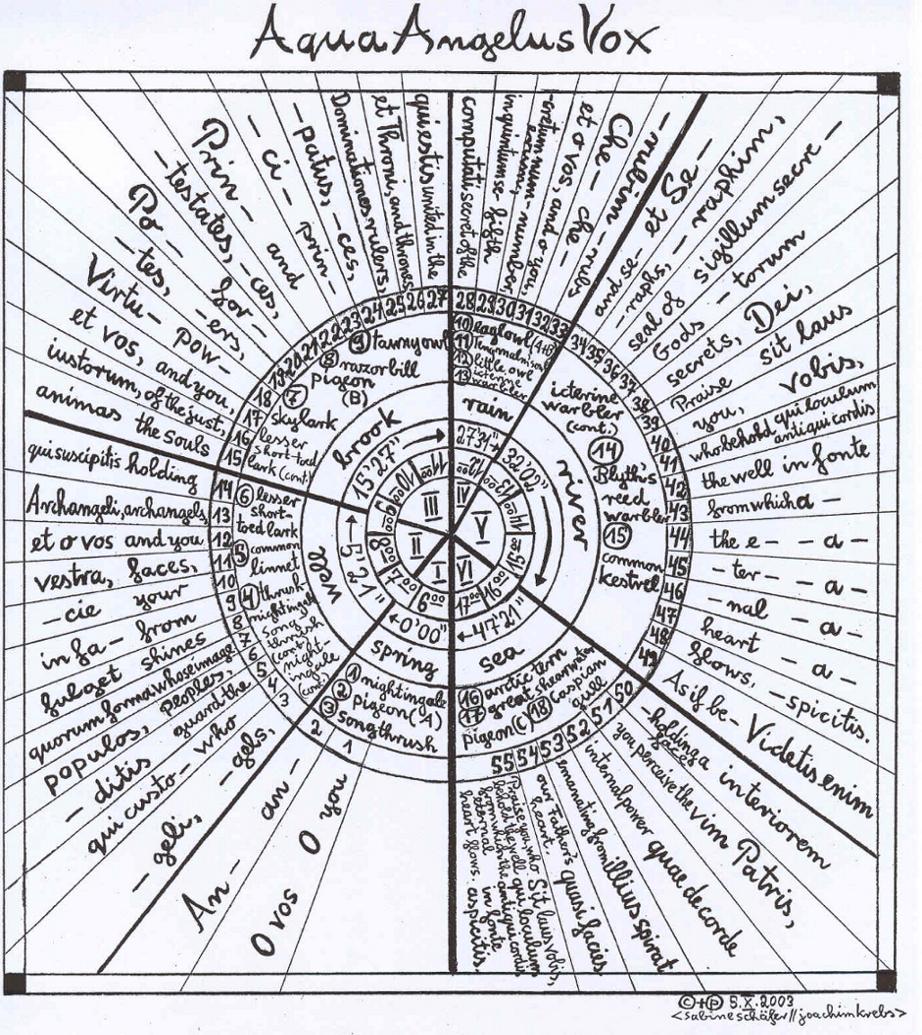 Aqua Angelus Vox
O vos O you
An- an-
- geli, - gels,
qui custo- who
- ditis guard the
populos, peoples,
quorum forma whose image
fulget shines
in fa- from
-cie your
vestra, faces,
et o vos and you
Archangeli, archangels,
qui suscipitis holding
animas the souls
iustorum, of the just,
et vos, and you,
Virtu- pow-
-tes, -ers,
Po- for-
-testates, -ces,
Prin- and
-ci- prin-
-patus, -ces,
Dominationes rulers,
et Throni, and thrones
qui estis united in the
computati secret of the
in quintum se- fifth
et o vos, and o you,
Che- che-
-rubim -rubs
et Se- and se-
-raphim, -raphs,
sigillum secre- seal of
-torum Gods
Dei, secrets,
sit laus Praise
vobis, you,
who behold qui loculum
antiqui cordis
the well in fonte
from which a-
the e- -a-
-ter- -a-
-nal -a-
heart -a-
flows, -spicitis.
As if be- Videtis enim
-holding a face interiorem
you perceive the vim Patris,
internal power quae de corde
emanating from illius spirat
our Father's quasi facies
heart. Sit laus vobis,
Praise you, who
behold the well qui loculum
from which the antiqui cordis
eternal in fonte
heart flows. aspicitis.
1
2
3
4
5
6
7
8
9
10
11
12
13
14
15
16
17
18
19
20
21
22
23
24
25
26
27
28
29
30
31
32
33
34
35
36
37
38
39
40
41
42
43
44
45
46
47
48
49
50
51
52
53
54
55
① nightingale
② pigeon (A)
③ songthrush
④ thrush
nightingale
song
thrush
(cont.)
night-
ingale
(cont.)
⑤ common
linnet
⑥ lesser
short-
toed lark
lesser
short-toed
lark (cont.)
skylark
⑦ pigeon
(B)
⑧ razorbill
⑨ tawny owl
⑩ eagle owl (A+B)
⑪ Temminck
⑫ little owl
⑬ icterine
warbler
icterine
warbler
(cont.)
⑭
Blyth's
reed
warbler
⑮
common
kestrel
⑯ arctic tern
⑰ great shearwater
pigeon (C) ⑱ Caspian
gull
spring
well
brook
rain
river
sea
0'00"
5'21"
15'27"
27'34"
32'05"
47'21"
I
II
III
IV
V
VI
©+℗ 5.X.2003
<sabine schäfer // joachim krebs>